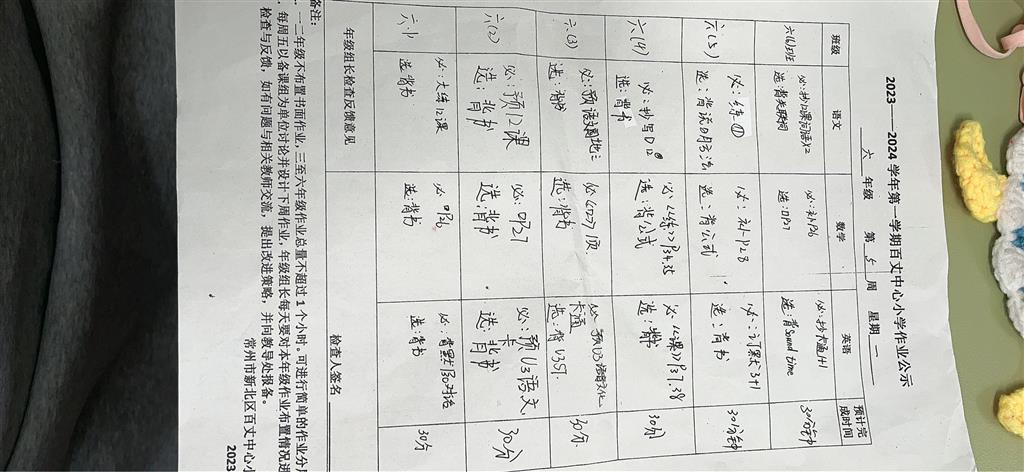 2023——2024 学年第一学期百丈中心小学作业公示
六 年级 第 5 周 星期 一
班级 语文 数学 英语 预计完成时间
六(6)班
必:抄12课词语X2
选:背关联词
必:补P26
选:P27
必:抄卡通1+1
选:背Sound time
30分钟
六(5)
必:练①
选:背说明方法
必:补P28
选:背公式
必:订默3+1
选:背书
30分钟
六(4)
必:抄写
选:背书
必:《练》P34.35
选:背公式
必:《课》P37.38
选:背书
30分
六.(3)
必:预语文园地三
选:背书
必:1页
选:背书
必:预U3
卡通
选:背U3S1.
30分
六(2)
必:预12课
选:背书
必:P27
选:背书
必:预U3语文、卡
选:背书
30分
六.1
必:大练12课
选:背书
必:P26
选:背书
必:背默P30对话
选:背书
30分
年级组长检查反馈意见
检查人签名
备注:
一二年级不布置书面作业,三至六年级作业总量不超过1个小时。可进行简单的作业分层
每周五以备课组为单位讨论并设计下周作业,年级组长每天要对本年级作业布置情况进
检查与反馈,如有问题与相关教师交流,提出改进策略,并向教导处报备。
常州市新北区百丈中心小
2023